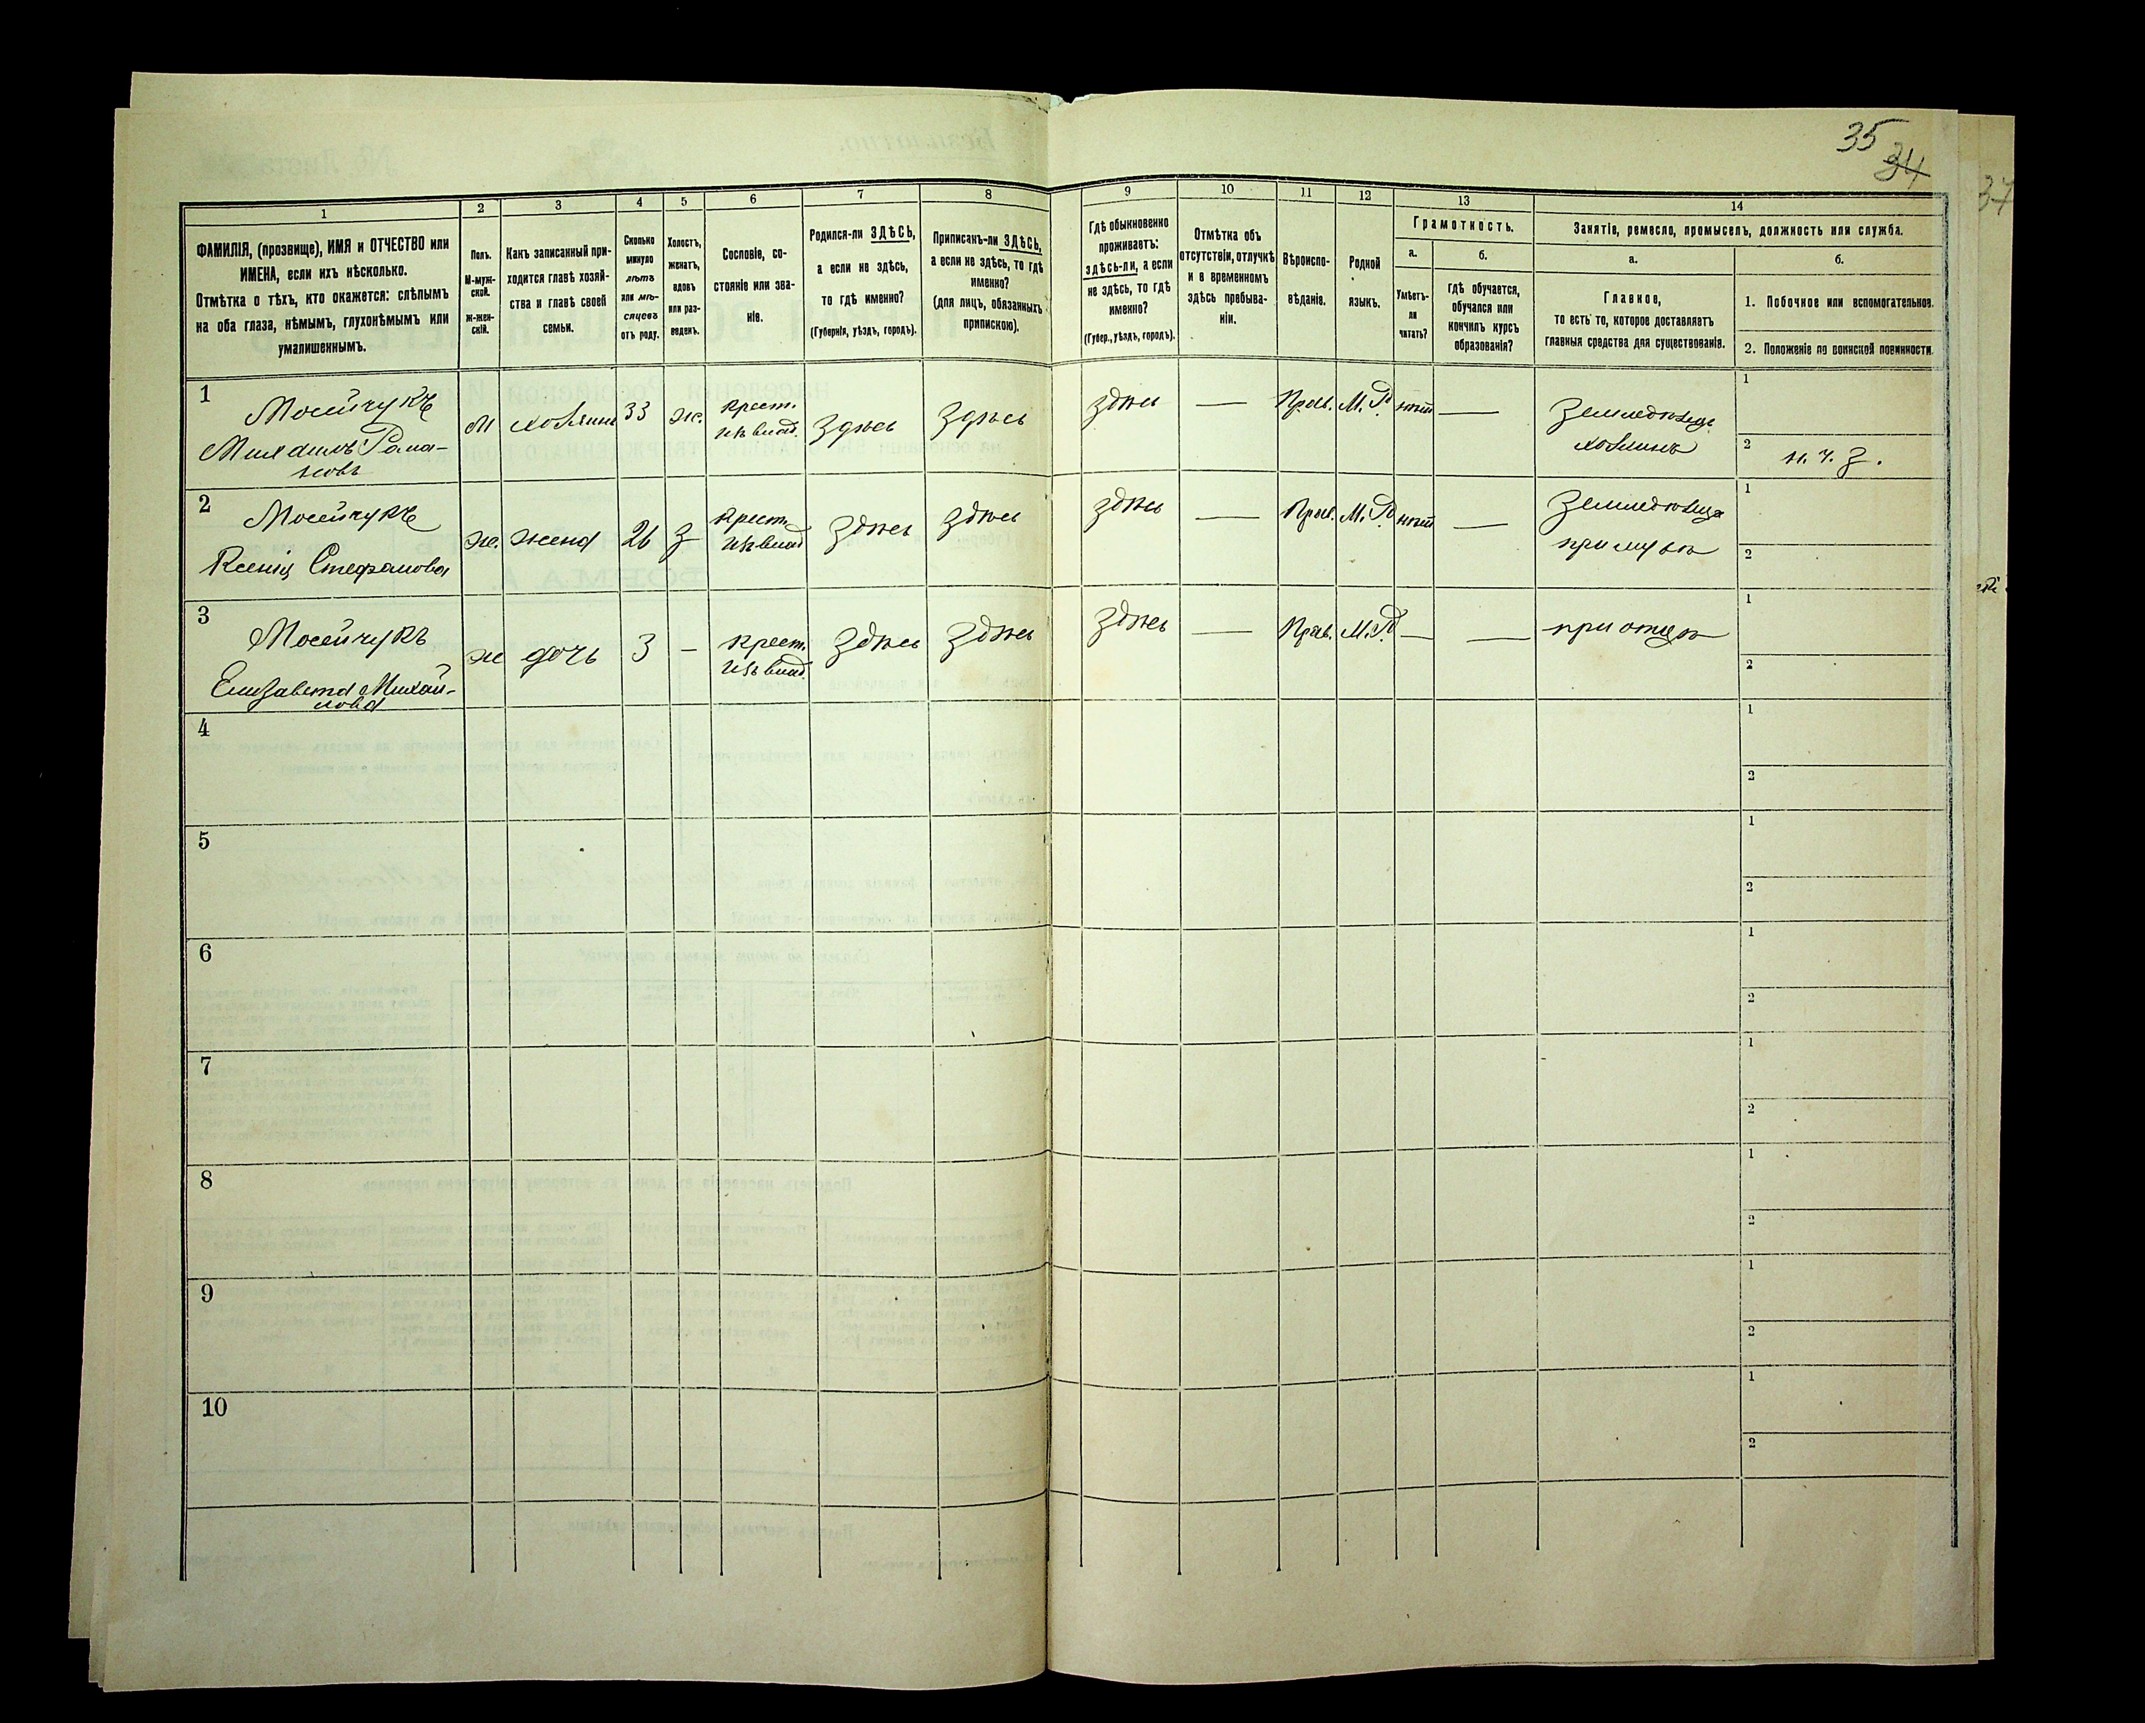 35
34
37
1
2
3
4
5
6
7
8
9
10
11
12
13
14
ФАМИЛІЯ, (прозвище), ИМЯ и ОТЧЕСТВО или
ИМЕНА, если ихъ нѣсколько.
Отмѣтка о тѣхъ, кто окажется: слѣпымъ
на оба глаза, нѣмымъ, глухонѣмымъ или
умалишеннымъ.
Полъ.
М-муж-
ской.
Ж-жен-
скій.
Какъ записанный при-
ходится главѣ хозяй-
ства и главѣ своей
семьи.
Сколько
минуло
лѣтъ
или мѣ-
сяцевъ
отъ роду.
Холостъ,
женатъ,
вдовъ
или раз-
веденъ.
Сословіе, со-
стояніе или зва-
ніе.
Родился-ли ЗДѢСЬ,
а если не здѣсь,
то гдѣ именно?
(Губернія, уѣздъ, городъ).
Приписанъ-ли ЗДѢСЬ,
а если не здѣсь, то гдѣ
именно?
(для лицъ, обязанныхъ
припискою).
Гдѣ обыкновенно
проживаетъ:
здѣсь-ли, а если
не здѣсь, то гдѣ
именно?
(Губер., уѣздъ, городъ).
Отмѣтка объ
отсутствіи, отлучкѣ
и о временномъ
здѣсь пребыва-
ніи.
Вѣроиспо-
вѣданіе.
Родной
языкъ.
Грамотность.
а.
Умѣетъ-
ли
читать?
б.
гдѣ обучается,
обучался или
кончилъ курсъ
образованія?
Занятіе, ремесло, промыселъ, должность или служба.
а.
Главное,
то есть то, которое доставляетъ
главныя средства для существованія.
б.
1. Побочное или вспомогательное.
2. Положеніе по воинской повинности.
1 Мосейчукъ
Михаилъ Рома-
новъ
М хозяинъ 33 ж. крест. изъ влад. Здѣсь Здѣсь здѣсь — Прав. М.Р. нѣтъ — Земледѣлецъ хозяинъ
1
2 н. ч. з.
2 Мосейчукъ
Ксенія Стефанова
ж. жена 26 з крест. изъ влад Здѣсь Здѣсь здѣсь — Прав. М.Р. нѣтъ — Земледѣлица при мужѣ
1
2
3 Мосейчукъ
Елизавета Михай-
лова
ж дочь 3 – крест. изъ влад. Здѣсь Здѣсь здѣсь — Прав. М.Р. — — при отцѣ
1
2
4
1
2
5
1
2
6
1
2
7
1
2
8
1
2
9
1
2
10
1
2